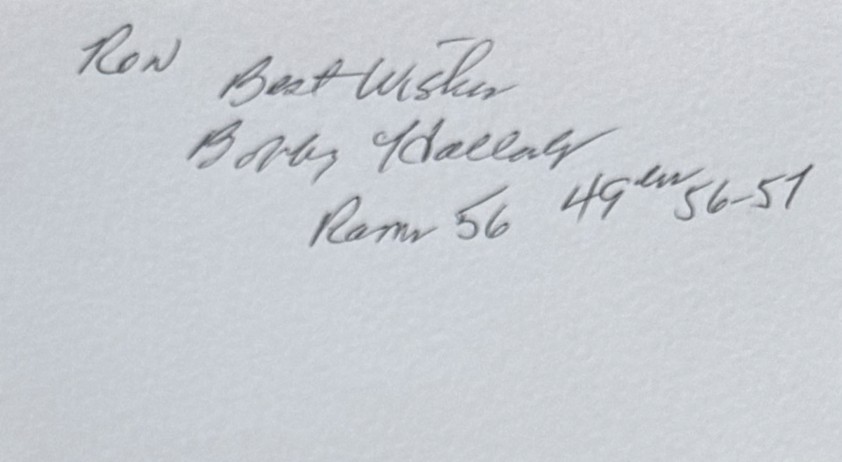 Ron
Best Wishes
Bobby Holladay
Rams 56 49ers 56-57